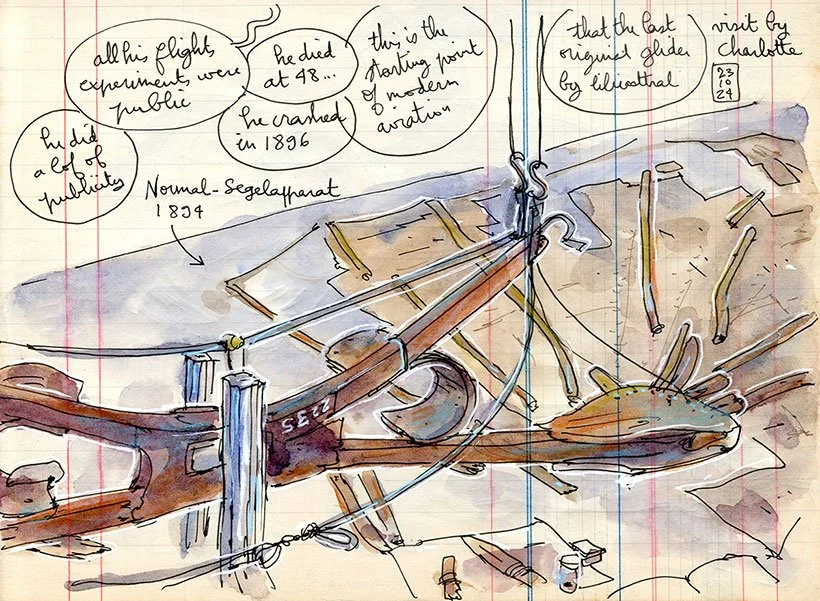 all his flights
experiments were
public
he died
at 48...
this is the
starting point
of modern
aviation
that the last
original glider
by lilienthal
visit by
Charlotte
23
10
24
he crashed
in 1896
he did
a lot of
publicity
Normal-Segelapparat
1894
2235